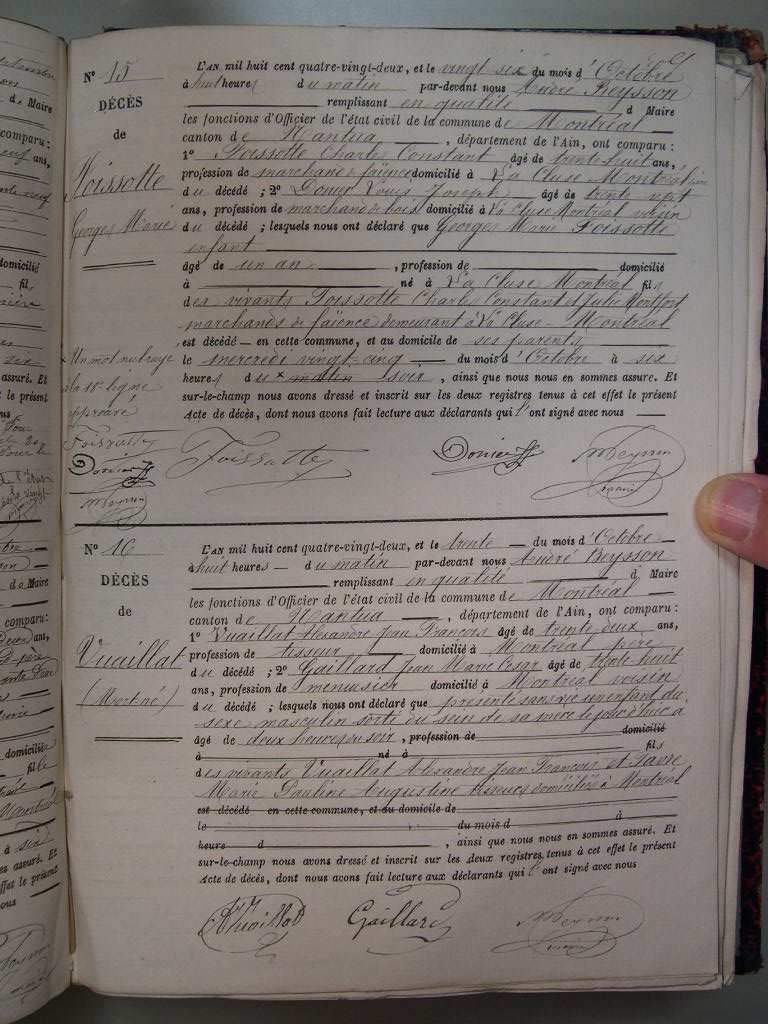 Nº 15
DÉCÈS
de
Foissotte
Georges Marie
L'AN mil huit cent quatre-vingt-deux, et le vingt six du mois d'Octobre
à huit heures du matin par-devant nous André Beysson
remplissant en qualité d Maire
les fonctions d'Officier de l'état civil de la commune de Montréal
canton de Nantua, département de l'Ain, ont comparu :
1º Foissotte Charles Constant âgé de trente huit ans,
profession de marchand de faïence domicilié à La Cluse Montréal
du décédé ; 2º Louis Joseph âgé de trente
ans, profession de marchand de bois domicilié à La Cluse Montréal voisin
du décédé ; lesquels nous ont déclaré que Georges Marie Foissotte
enfant
âgé de un an, profession de domicilié
à né à La Cluse Montréal fils
des vivants Foissotte Charles Constant et Julie Montfort
marchands de faïence demeurant à La Cluse - Montréal
est décédé en cette commune, et au domicile de ses parents
le mercredi vingt-cinq du mois d'Octobre à six
heures du × matin soir, ainsi que nous nous en sommes assuré. Et
sur-le-champ nous avons dressé et inscrit sur les deux registres tenus à cet effet le présent
Acte de décès, dont nous avons fait lecture aux déclarants qui l'ont signé avec nous
× Un mot nul rayé
à la 18e ligne
approuvé
Foissotte
Foissotte
Nº 16
DÉCÈS
de
Vuaillat
(Mort né)
L'AN mil huit cent quatre-vingt-deux, et le trente du mois d'Octobre
à huit heures du matin par-devant nous André Beysson
remplissant en qualité d Maire
les fonctions d'Officier de l'état civil de la commune de Montréal
canton de Nantua, département de l'Ain, ont comparu :
1º Vuaillat Alexandre Jean François âgé de trente deux ans,
profession de tisseur domicilié à Montréal père
du décédé ; 2º Gaillard Jean Marie César âgé de trente huit
ans, profession de menuisier domicilié à Montréal voisin
du décédé ; lesquels nous ont déclaré que présente sans vie un enfant du
sexe masculin sorti du sein de sa mère le jour d'hier à
âgé de deux heures du soir, profession de domicilié
à né à fils
des vivants Vuaillat Alexandre Jean François et Favre
Marie Pauline Augustine tisseurs domiciliés à Montréal
est décédé en cette commune, et au domicile de
le du mois d à
heure d, ainsi que nous nous en sommes assuré. Et
sur-le-champ nous avons dressé et inscrit sur les deux registres tenus à cet effet le présent
Acte de décès, dont nous avons fait lecture aux déclarants qui l'ont signé avec nous
Vuaillat Gaillard Beysson